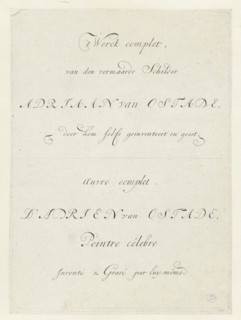 Werck complet.
van den vermaarde Schilder
ADRIAAN van OSTADE.
door hem selfs geinventeert en geest
Œuvre complet.
D'ADRIEN van OSTADE.
Peintre célebre
Inventé & Gravé par luy même